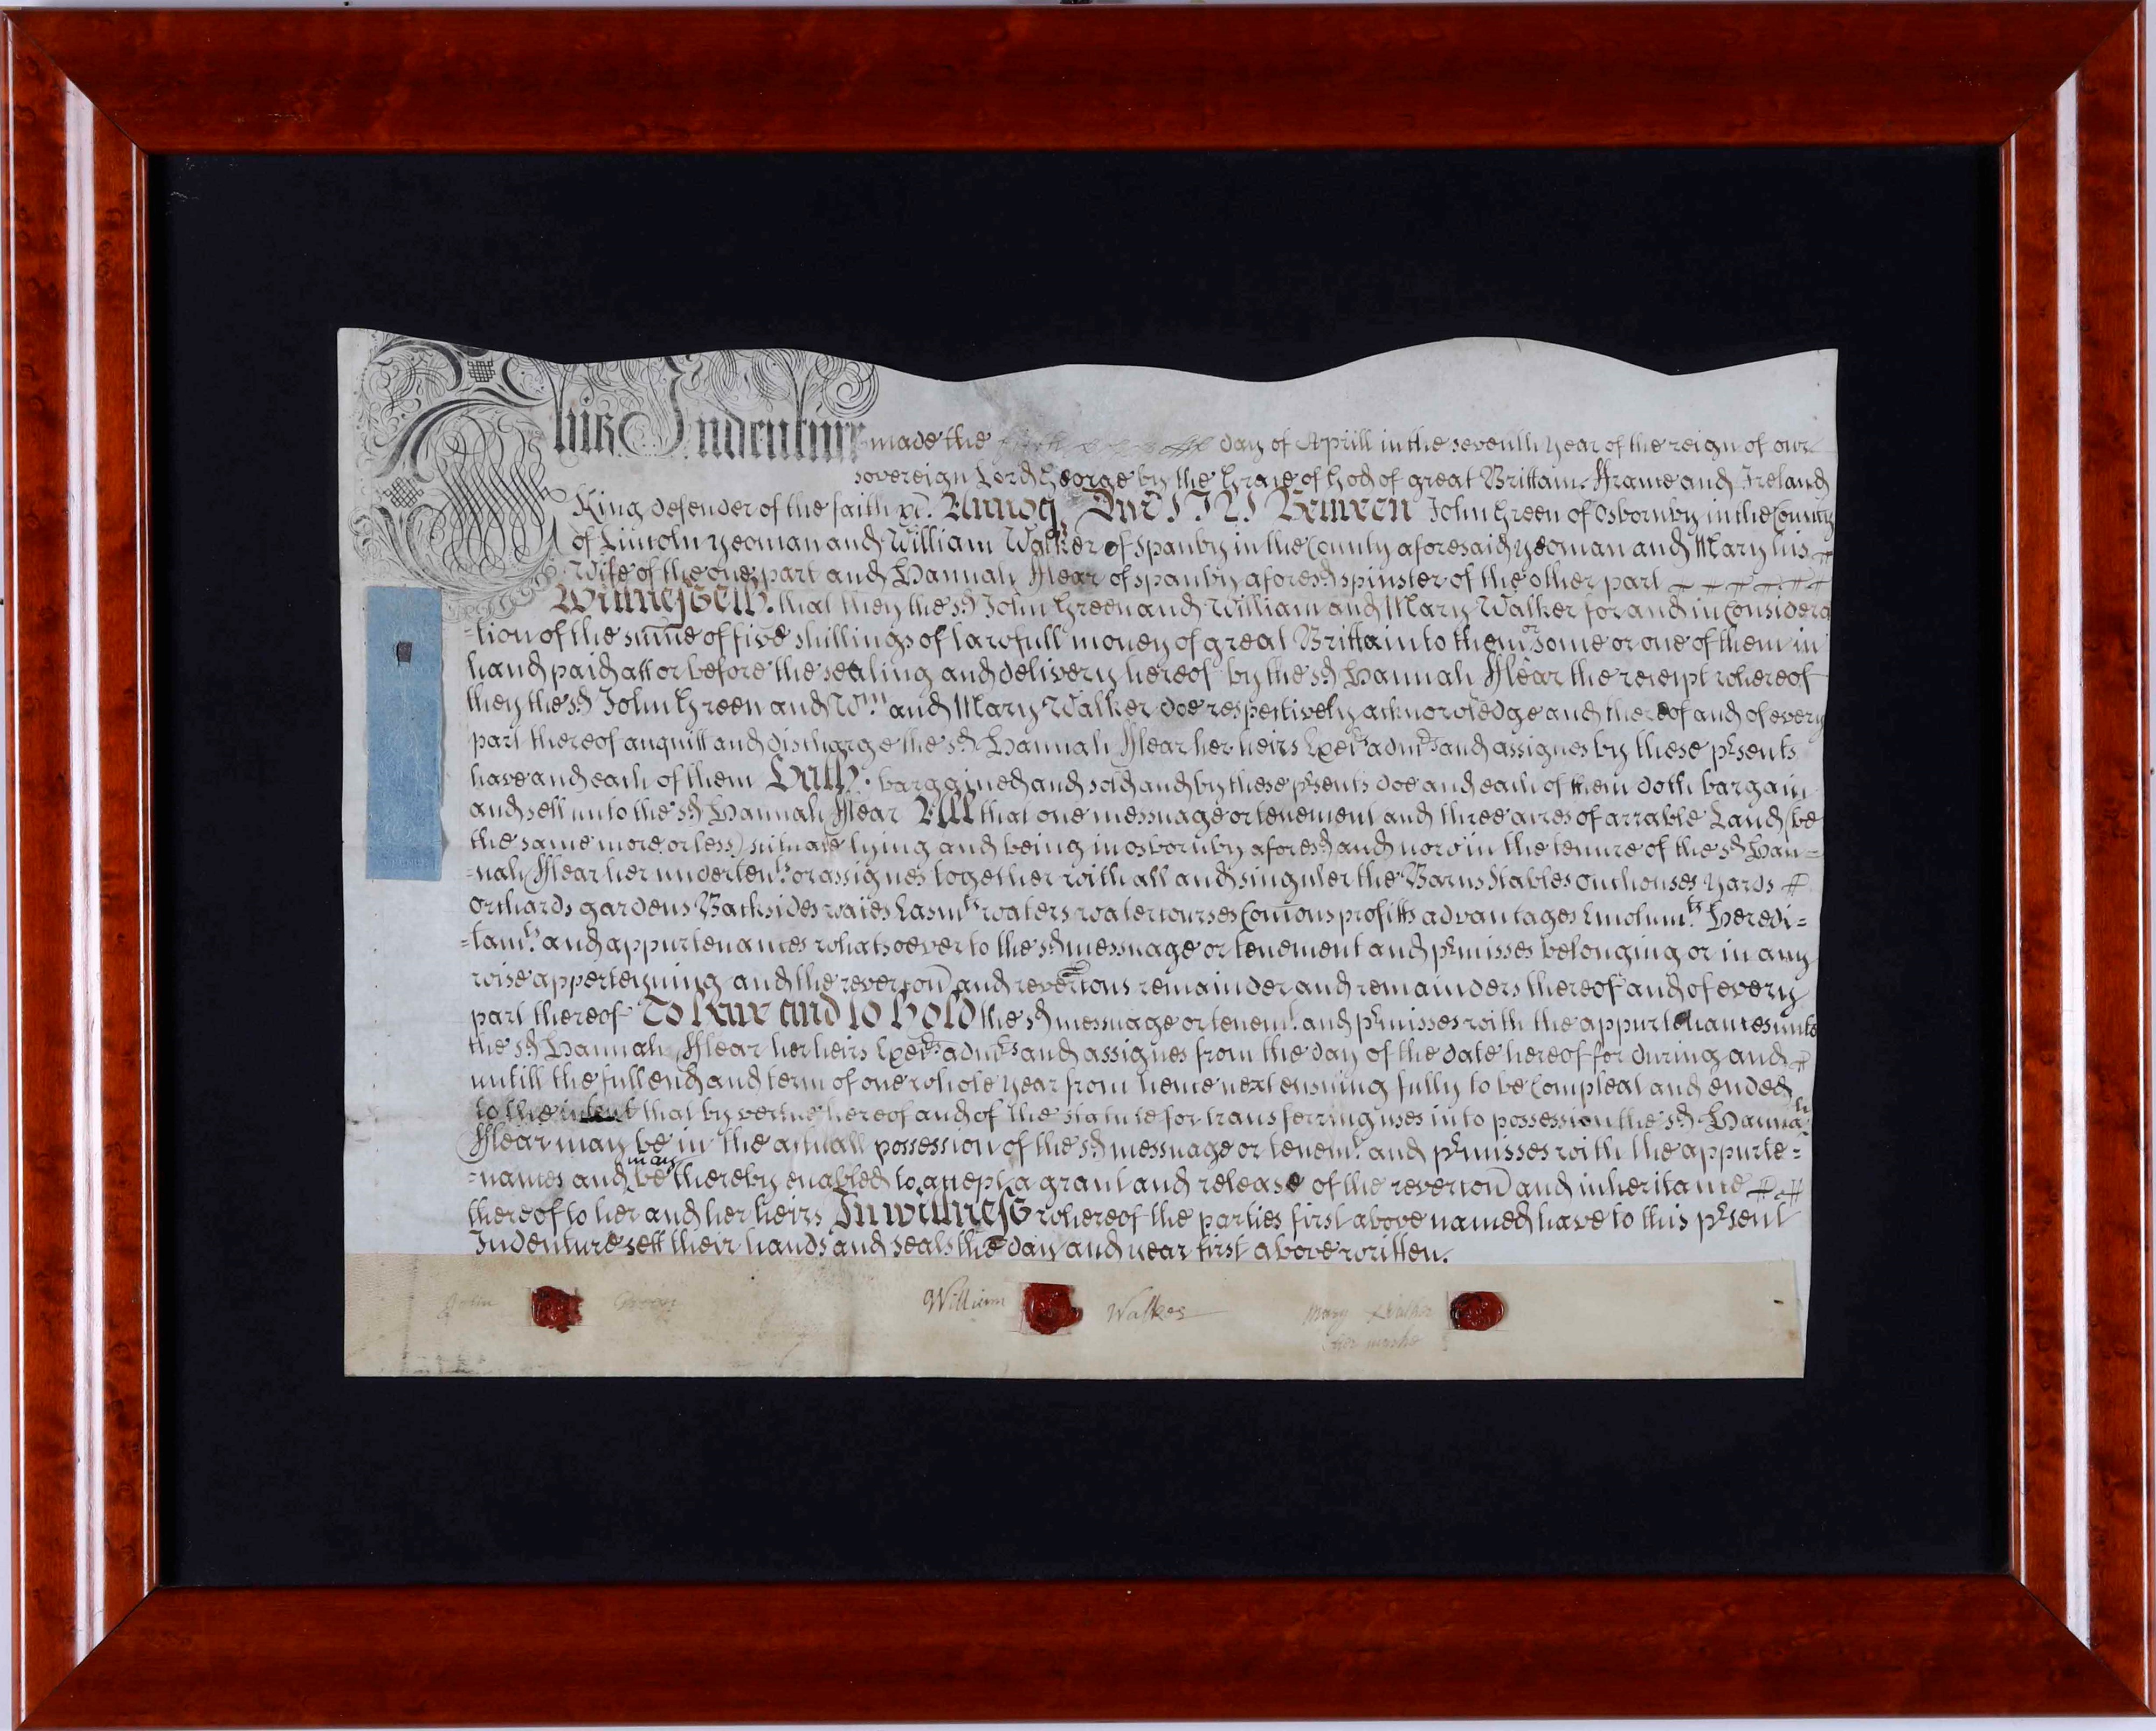 This Indenture made the day of Aprill in the seventh year of the reign of our
sovereign Lord George by the Grace of God of great Brittain ffrance and Ireland
King defender of the faith &c. Annoq. Dni 1721 Between John Green of Osbornby in the County
of Lincoln yeoman and William Walker of Spanby in the County aforesaid yeoman and Mary his
Wife of the one part and Hannah fflear of spanby aforesd spinster of the other part
Witnesseth that they the sd John Green and William and Mary Walker for and in Considera
=tion of the sume of five shillings of lawfull money of great Brittain to them or some or one of them in
hand paid att or before the sealing and delivery hereof by the sd Hannah fflear the receipt whereof
they the sd John Green and Wm and Mary Walker doe respectively acknowledge and thereof and of every
part thereof acquitt and discharge the sd Hannah fflear her heirs Execrs admrs and assignes by these psents
have and each of them Hath bargained and sold and by these psents doe and each of them doth bargain
and sell unto the sd Hannah fflear All that one messuage or tenement and three acres of arrable Land (be
the same more or less) situate lying and being in osbornby aforesd and now in the tenure of the sd Han=
=nah fflear her undertents or assignes together with all and singuler the Barns Stables outhouses yards
orchards gardens Backsides waies Easmts waters watercourses Comons profitts advantages Emolumts Heredi=
=tamts and appurtenances whatsoever to the sd messuage or tenement and pmisses belonging or in any
wise apperteyning and the revercon and revercons remainder and remainders thereof and of every
part thereof To have and to hold the sd messuage or tenemt and pmisses with the appurtenances unto
the sd Hannah fflear her heirs Execrs admrs and assignes from the day of the date hereof for during and
untill the full end and term of one whole year from hence next ensuing fully to be Compleat and ended
to the intent that by vertue hereof and of the statute for transferring uses into possession the sd Hannah
fflear may be in the actuall possession of the sd messuage or tenemt and pmisses with the appurte=
=nances and may be thereby enabled to accept a grant and release of the revercon and inheritance
thereof to her and her heirs In witness whereof the parties first above named have to this psent
Indenture sett their hands and seals the day and year first above written.
John Green William Walker Mary Walker
her marke